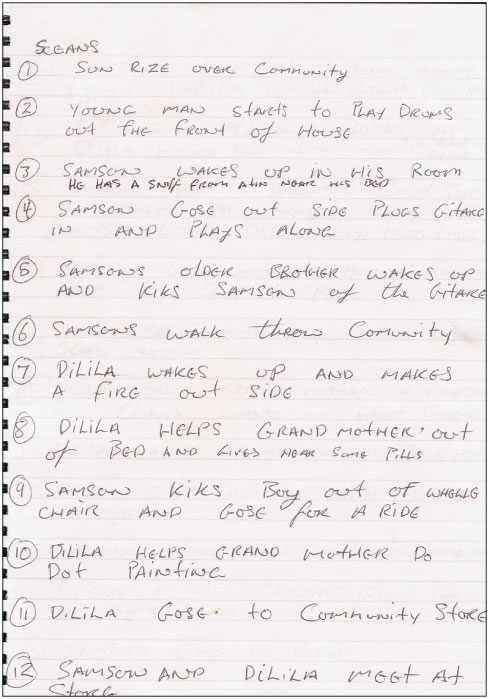 SCEANS
① SUN RIZE OVER COMMUNITY
② YOUNG MAN STARTS TO PLAY DRUMS
OUT THE FRONT OF HOUSE
③ SAMSON WAKES UP IN HIS ROOM
HE HAS A SNIFF FROM A TIN NEAR HIS BED
④ SAMSON GOSE OUT SIDE PLUGS GITARE
IN AND PLAYS ALONG
⑤ SAMSONS OLDER BROTHER WAKES UP
AND KIKS SAMSON OF THE GITARE
⑥ SAMSONS WALK THROW COMUNITY
⑦ DILILA WAKES UP AND MAKES
A FIRE OUT SIDE
⑧ DILILA HELPS GRAND MOTHER OUT
OF BED AND GIVES HEAR SOME PILLS
⑨ SAMSON KIKS BOY OUT OF WHELLE
CHAIR AND GOSE FOR A RIDE
⑩ DILILA HELPS GRAND MOTHER DO
DOT PAINTING
⑪ DILILA GOSE TO COMMUNITY STORE
⑫ SAMSON AND DILILA MEET AT
STORE